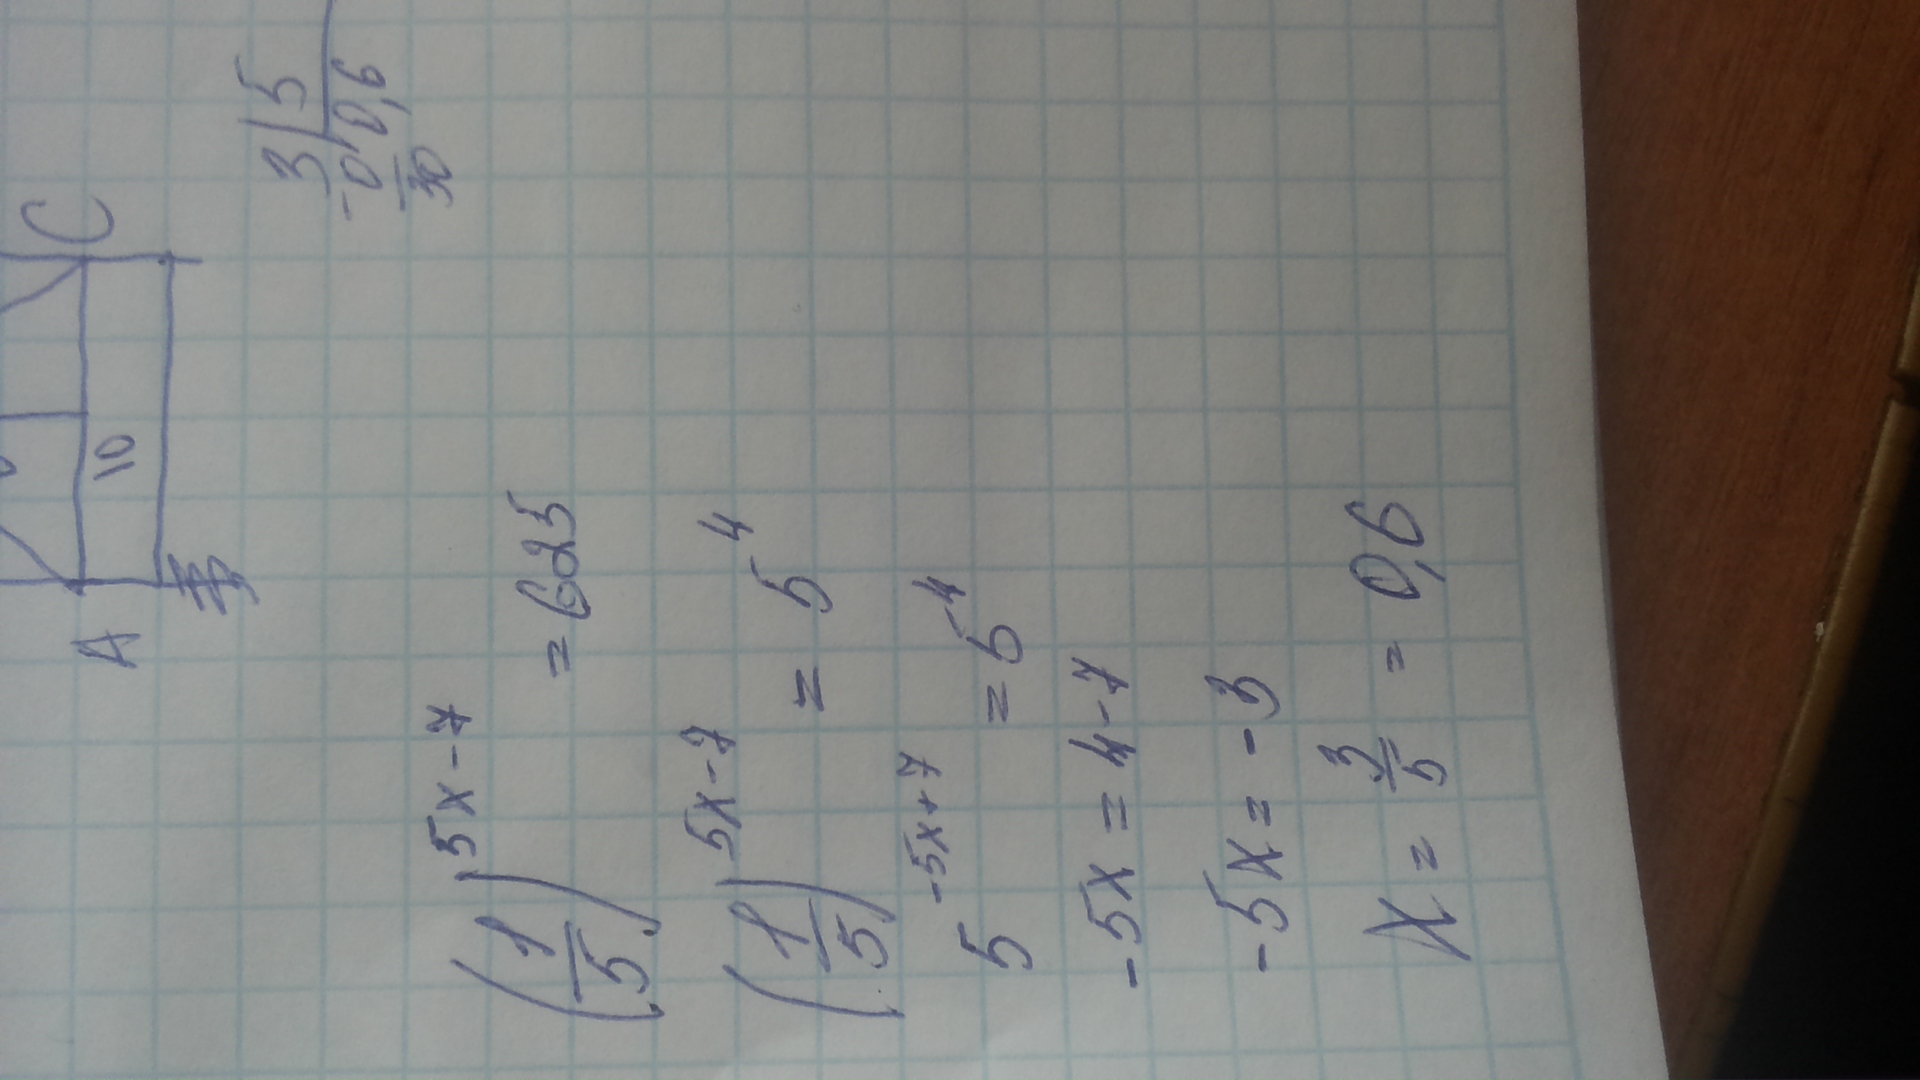 A C
10
3 | 5
-0 0,6
30
(1/5)^5x-7 = 625
(1/5)^5x-7 = 5^4
5^-5x+7 = 5^4
-5x = 4-7
-5x = -3
x = 3/5 = 0,6